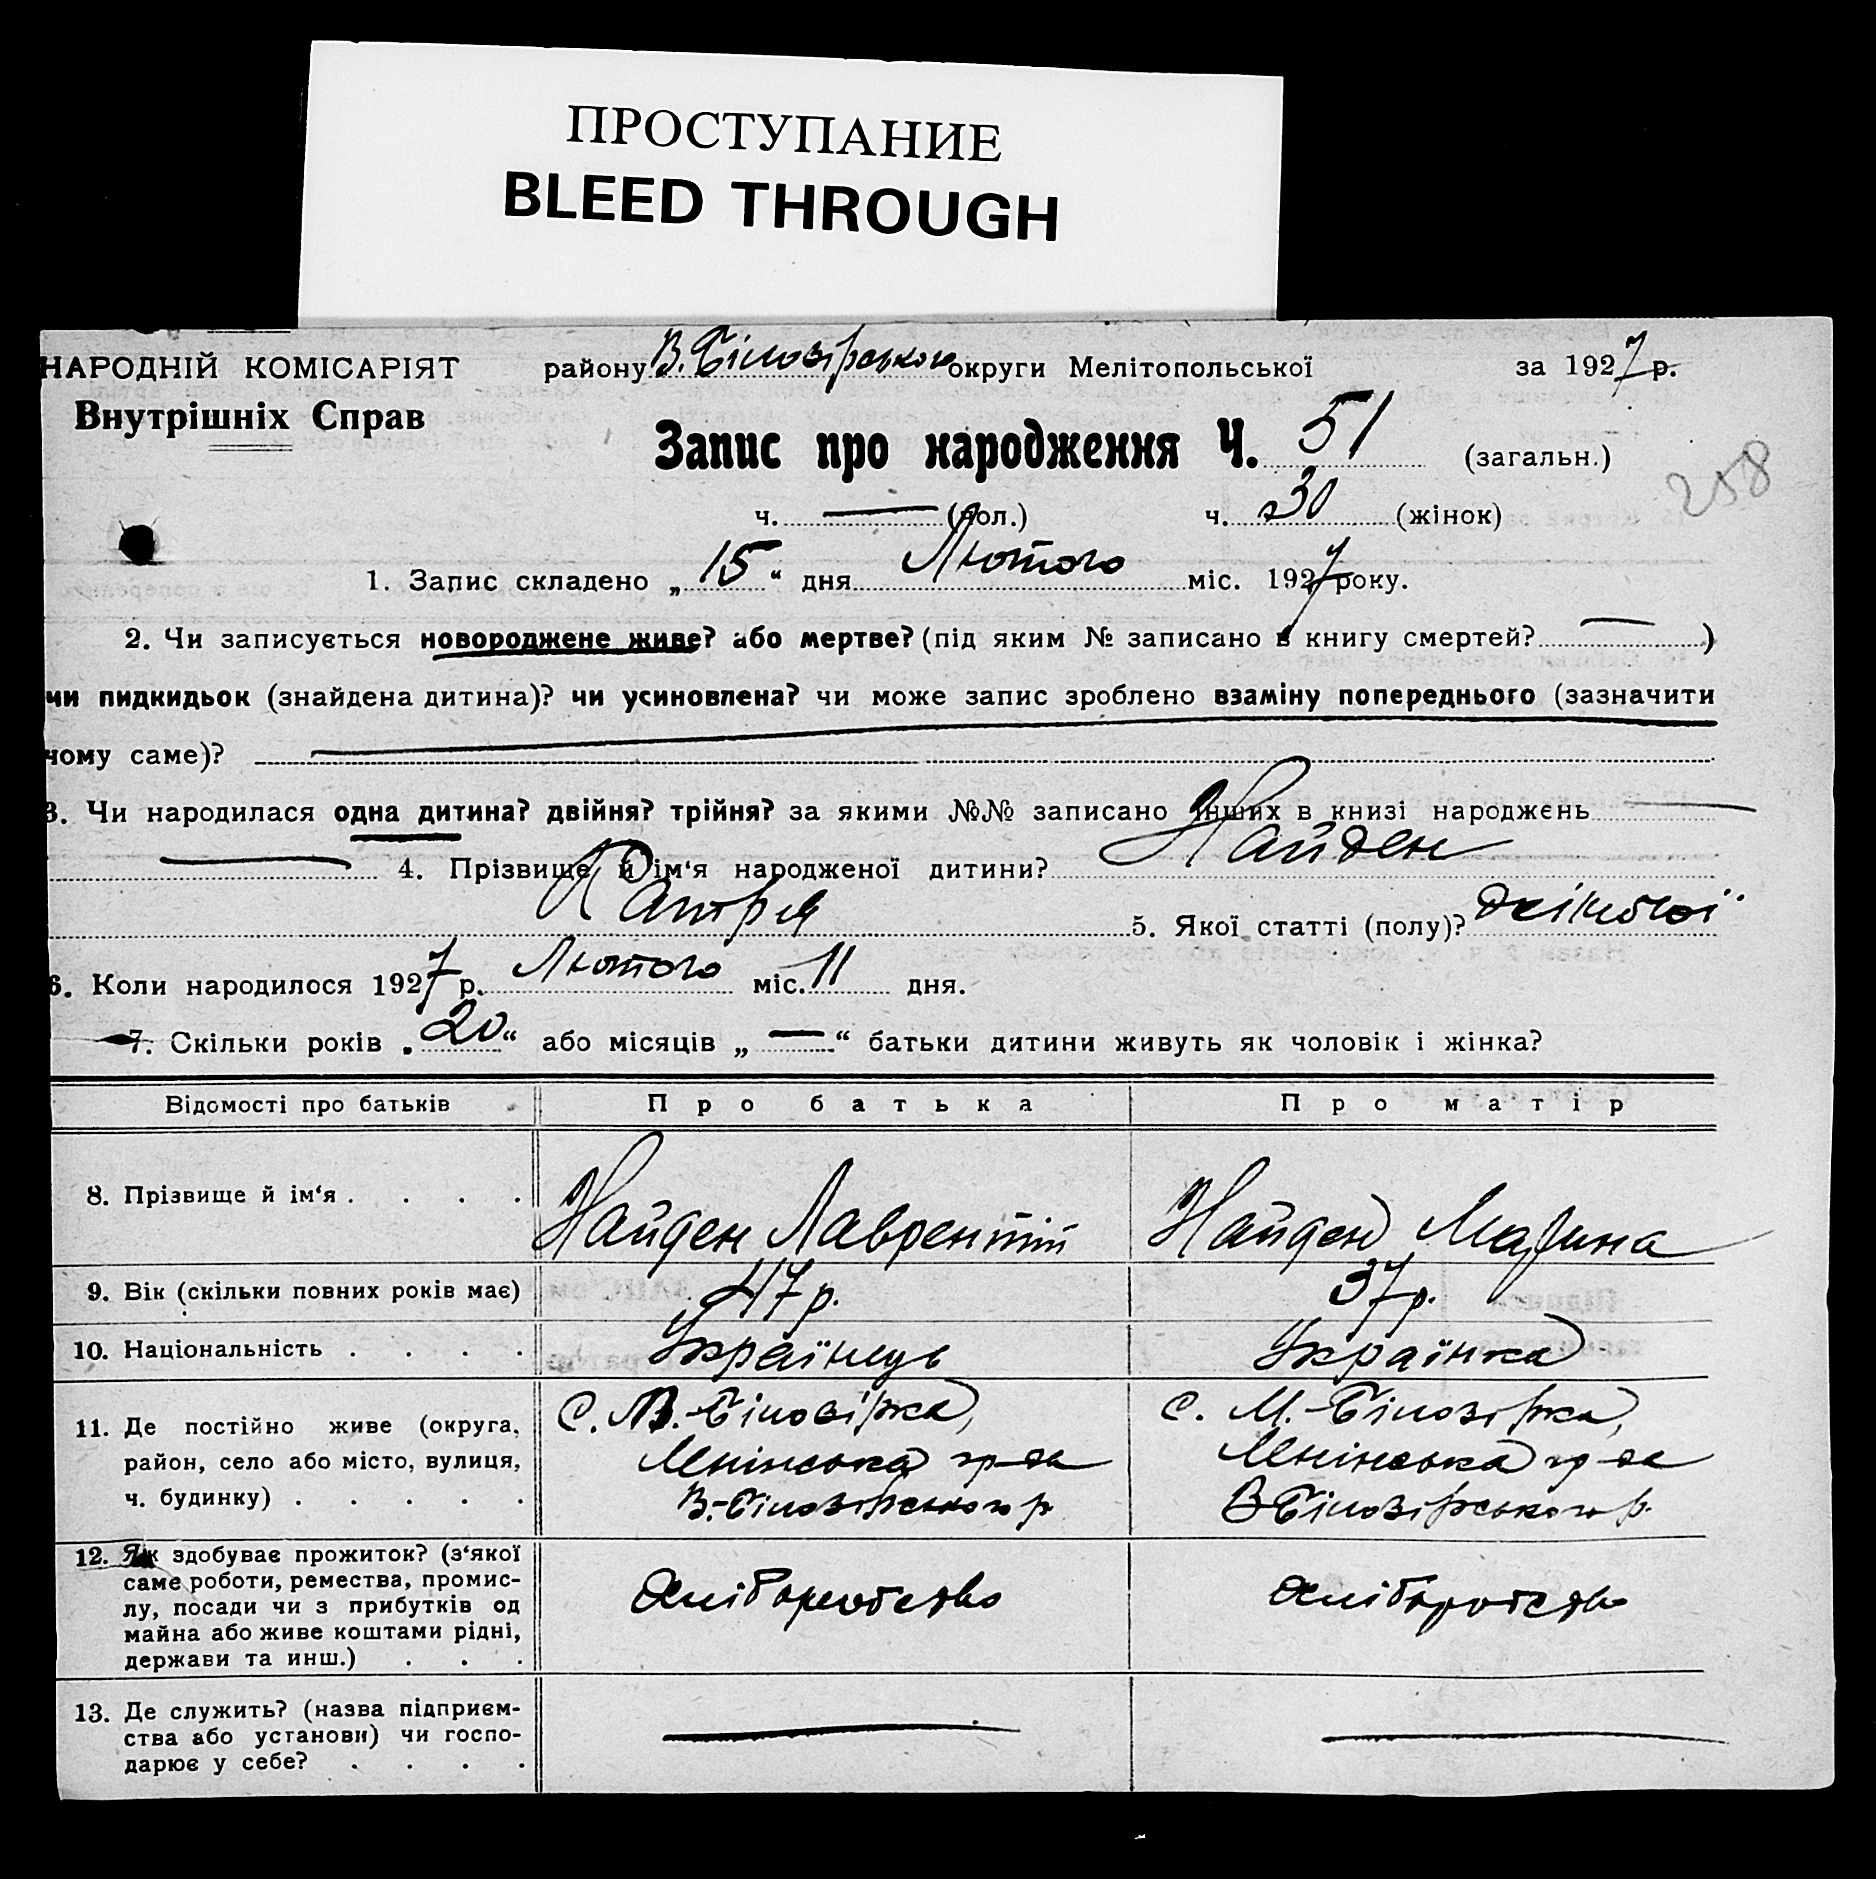 ПРОСТУПАНИЕ
BLEED THROUGH
НАРОДНІЙ КОМІСАРІЯТ району В. Білозірського округи Мелітопольської за 1927 р.
Внутрішніх Справ
Запис про народження Ч. 51 (загальн.)
258
ч. — (чол.) ч. 30 (жінок)
1. Запис складено „15“ дня Лютого міс. 1927 року.
2. Чи записується новороджене живе? або мертве? (під яким № записано в книгу смертей? — )
чи пидкидьок (знайдена дитина)? чи усиновлена? чи може запис зроблено взаміну попереднього (зазначити
чому саме)?
3. Чи народилася одна дитина? двійня? трійня? за якими №№ записано инших в книзі народжень —
— 4. Прізвище й ім‘я народженої дитини? Найден
Катря 5. Якої статті (полу)? жіночої
6. Коли народилося 1927 р. Лютого міс. 11 дня.
7. Скільки років „20“ або місяців „—“ батьки дитини живуть як чоловік і жінка?
Відомості про батьків Про батька Про матір
8. Прізвище й ім‘я . . . . Найден Лаврентій Найден Марина
9. Вік (скільки повних років має) 47 р. 37 р.
10. Національність . . . . Українець Українка
11. Де постійно живе (округа, район, село або місто, вулиця, ч. будинку) . . . . .
С. М.-Білозірка, с. М.-Білозірка,
В.-Білозірського р. В-Білозірського р.
12. Як здобуває прожиток? (з‘якої
саме роботи, ремества, промис-
лу, посади чи з прибутків од
майна або живе коштами рідні,
держави та инш.) . . .
Хліборобство Хліборобство
13. Де служить? (назва підприєм-
ства або установи) чи госпо-
дарює у себе? . . . .
— —